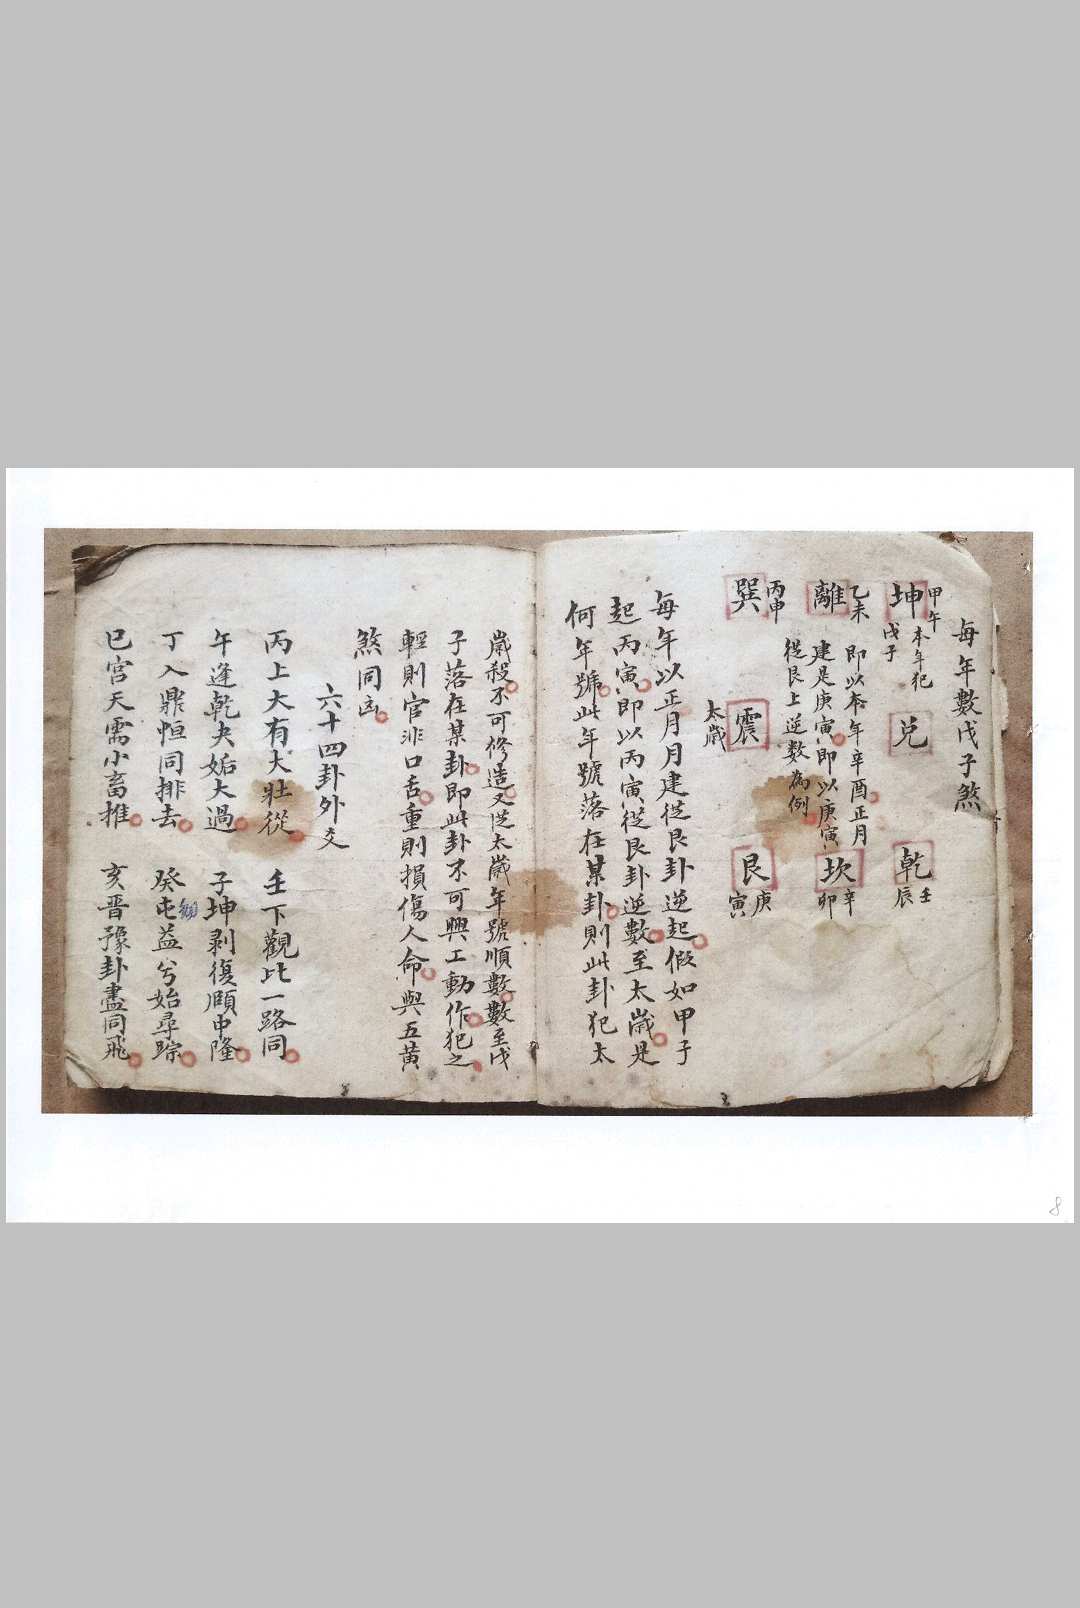 每年數戊子煞
坤
甲午
本年犯
戊子
兌
乾
壬辰
離
乙未
即以本年辛酉正月
建是庚寅即以庚寅
從艮上逆數為例
坎
辛卯
巽
丙申
震
太歲
艮
庚寅
每年以正月月建從艮卦逆起假如甲子
起丙寅即以丙寅從艮卦逆數至太歲是
何年號此年號落在某卦則此卦犯太
歲殺不可修造又從太歲年號順數數至戊
子落在某卦即此卦不可興工動作犯之
輕則官非口舌重則損傷人命與五黃
煞同凶
六十四卦外爻
丙上大有大壯從 壬下觀比一路同
午逢乾夬姤大過 子坤剥復頤中隆
丁入鼎恒同排去 癸屯益兮始尋踪
巳宮天需小畜推 亥晋豫卦盡同飛
8